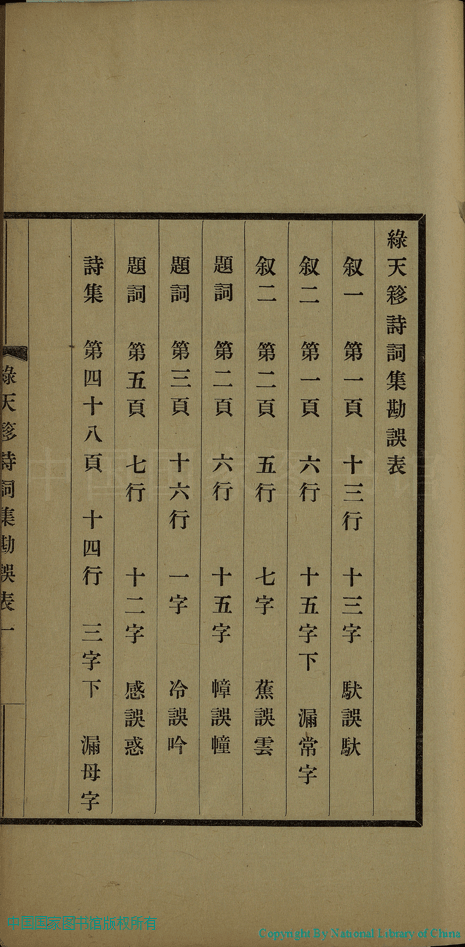 綠天簃詩詞集勘誤表
叙一 第一頁 十三行 十三字 馱誤馱
叙二 第一頁 六行 十五字下 漏常字
叙二 第二頁 五行 七字 蕉誤雲
題詞 第二頁 六行 十五字 幛誤幢
題詞 第三頁 十六行 一字 冷誤吟
題詞 第五頁 七行 十二字 感誤惑
詩集 第四十八頁 十四行 三字下 漏母字
綠天簃詩詞集勘誤表 一
中国国家图书馆版权所有
Copyright By National Library of China